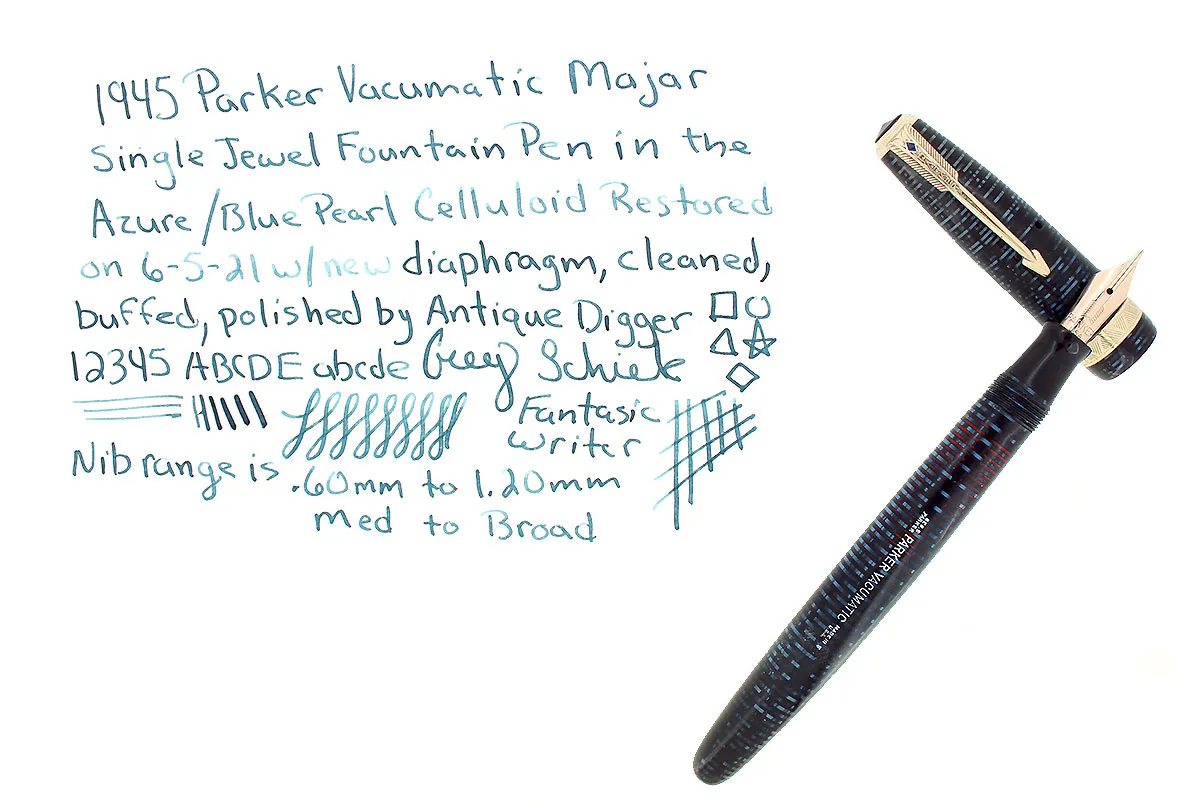 1945 Parker Vacumatic Majar
Single Jewel Fountain Pen in the
Azure/Blue Pearl Celluloid Restored
on 6-5-21 w/new diaphragm, cleaned,
buffed, polished by Antique Digger
12345 ABCDE abcde
Fantasic
writer
Nib range is .60mm to 1.20mm
Med to Broad
PARKER VACUMATIC
MADE IN
U.S.A.